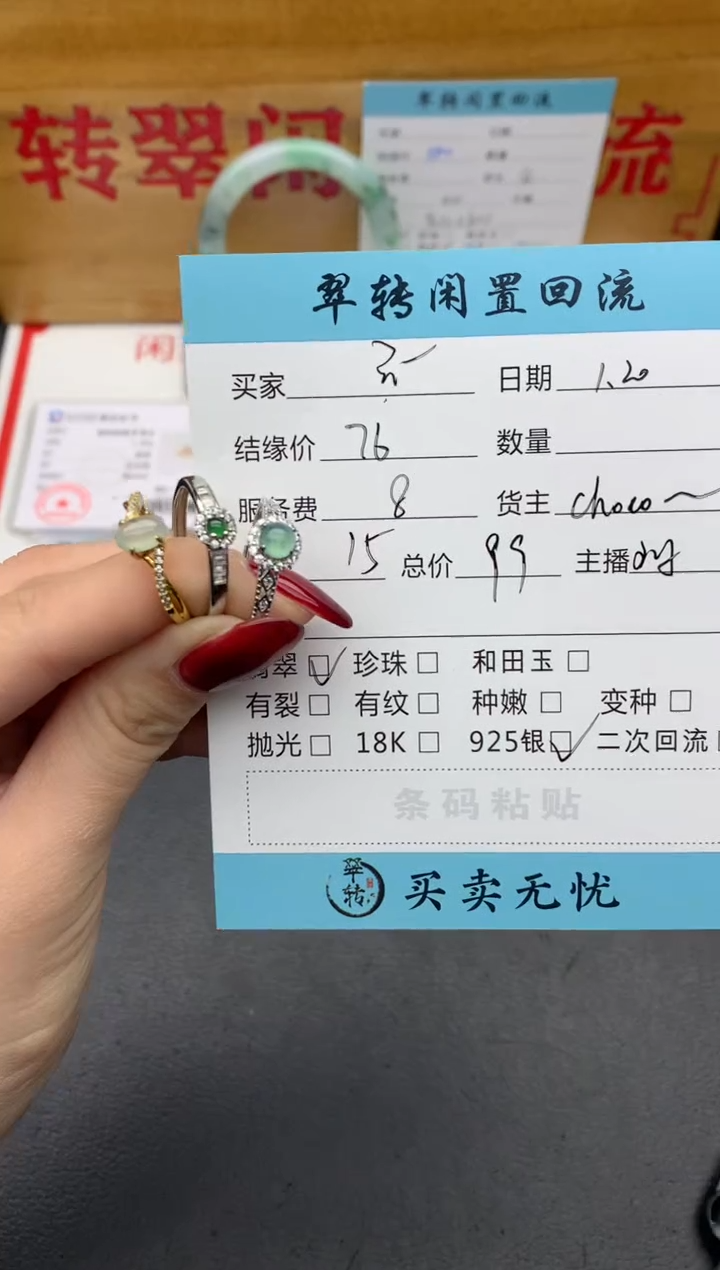 转翠闲 流
翠转闲置回流
闲
翠转闲置回流
买家 日期 1.20
结缘价 76 数量
服务费 8 货主 choco～
15 总价 99 主播
翡翠 ☑ 珍珠 □ 和田玉 □
有裂 □ 有纹 □ 种嫩 □ 变种 □
抛光 □ 18K □ 925银 ☑ 二次回流
条码粘贴
翠转
买卖无忧